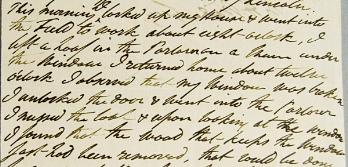 This morning locked up my house & went into
the Field to work about eight oclock, I
left a loaf in the Parlour on a Chair under
the Window I returned home about twelve
oclock I observed that my Window was broken
I unlocked the door & went into the Parlour
I missed the loaf & upon looking at the window
I found that the wood that keeps the window
fast had been removed, that could be done